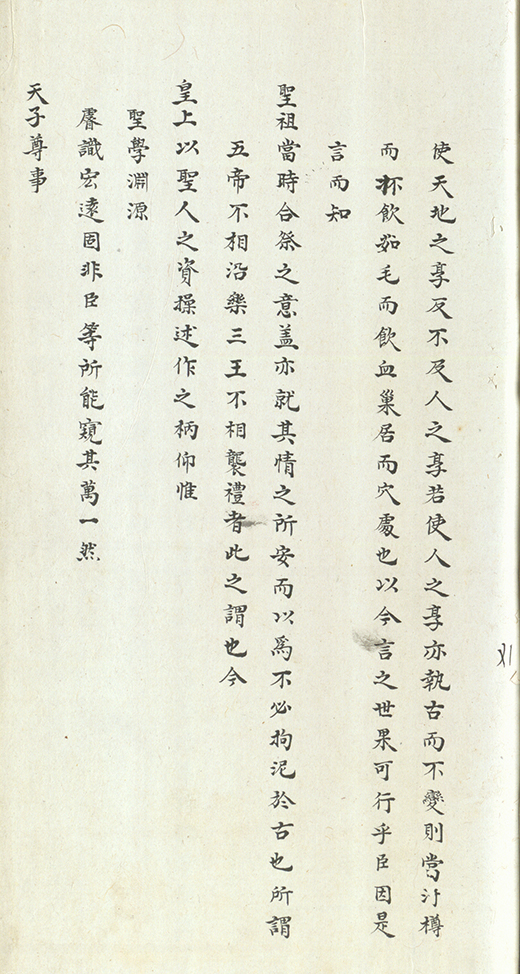 使天地之享反不及人之享若使人之享亦執古而不變則當汙樽
而抔飲茹毛而飲血巢居而穴處也以今言之世果可行乎臣因是
言而知
聖祖當時合祭之意盖亦就其情之所安而以爲不必拘泥於古也所謂
五帝不相沿樂三王不相襲禮者此之謂也今
皇上以聖人之資操述作之柄仰惟
聖學淵源
睿識宏遠固非臣等所能窺其萬一然
天子尊事